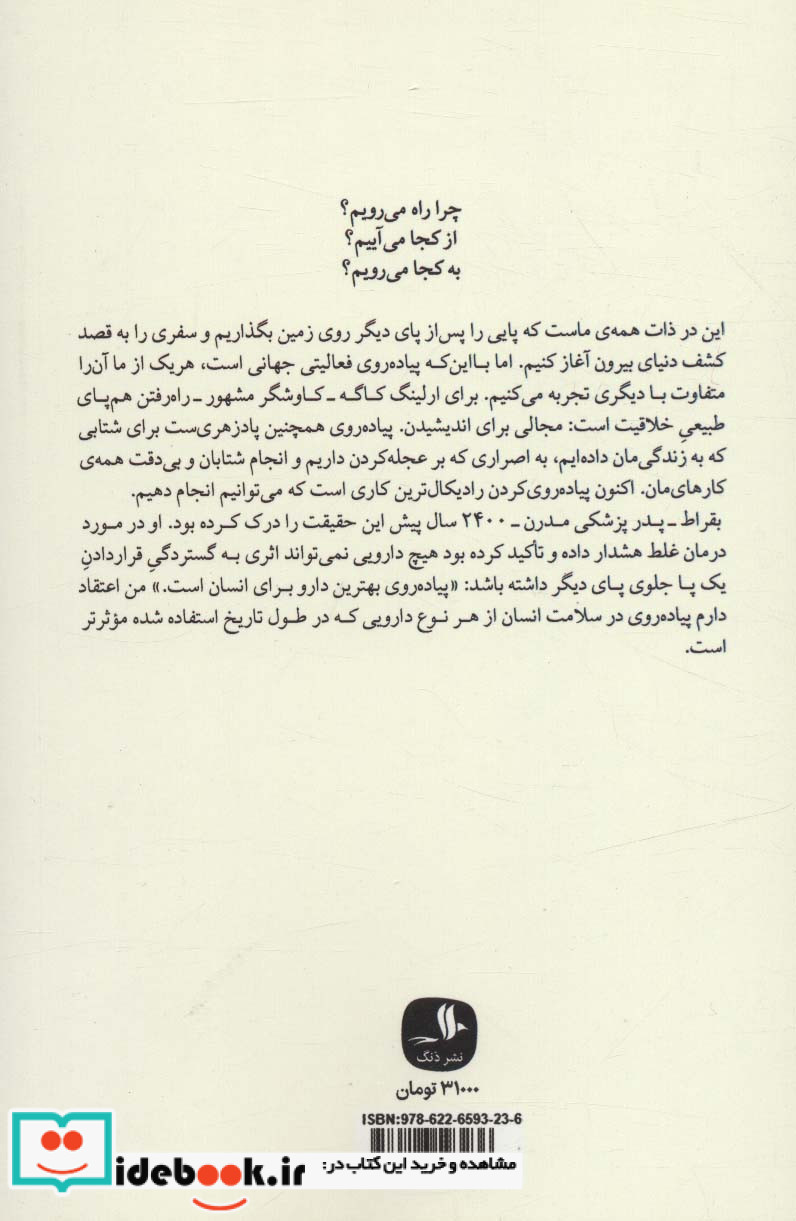 چرا راه می‌رویم؟
از کجا می‌آییم؟
به کجا می‌رویم؟
این در ذات همه‌ی ماست که پایی را پس‌از پای دیگر روی زمین بگذاریم و سفری را به قصد
کشف دنیای بیرون آغاز کنیم. اما بااین‌که پیاده‌روی فعالیتی جهانی است، هریک از ما آن‌را
متفاوت با دیگری تجربه می‌کنیم. برای ارلینگ کاگه ـ کاوشگر مشهور ـ راه‌رفتن هم‌پای
طبیعیِ خلاقیت است: مجالی برای اندیشیدن. پیاده‌روی همچنین پادزهری‌ست برای شتابی
که به زندگی‌مان داده‌ایم، به اصراری که بر عجله‌کردن داریم و انجام شتابان و بی‌دقت همه‌ی
کارهای‌مان. اکنون پیاده‌روی‌کردن رادیکال‌ترین کاری است که می‌توانیم انجام دهیم.
بقراط ـ پدر پزشکی مدرن ـ ۲۴۰۰ سال پیش این حقیقت را درک کرده بود. او در مورد
درمان غلط هشدار داده و تأکید کرده بود هیچ دارویی نمی‌تواند اثری به گستردگیِ قراردادنِ
یک پا جلوی پای دیگر داشته باشد: «پیاده‌روی بهترین دارو برای انسان است.» من اعتقاد
دارم پیاده‌روی در سلامت انسان از هر نوع دارویی که در طول تاریخ استفاده شده مؤثرتر
است.
نشر ذنگ
۳۱۰۰۰ تومان
ISBN:978-622-6593-23-6
مشاهده و خرید این کتاب در:
idebook.ir